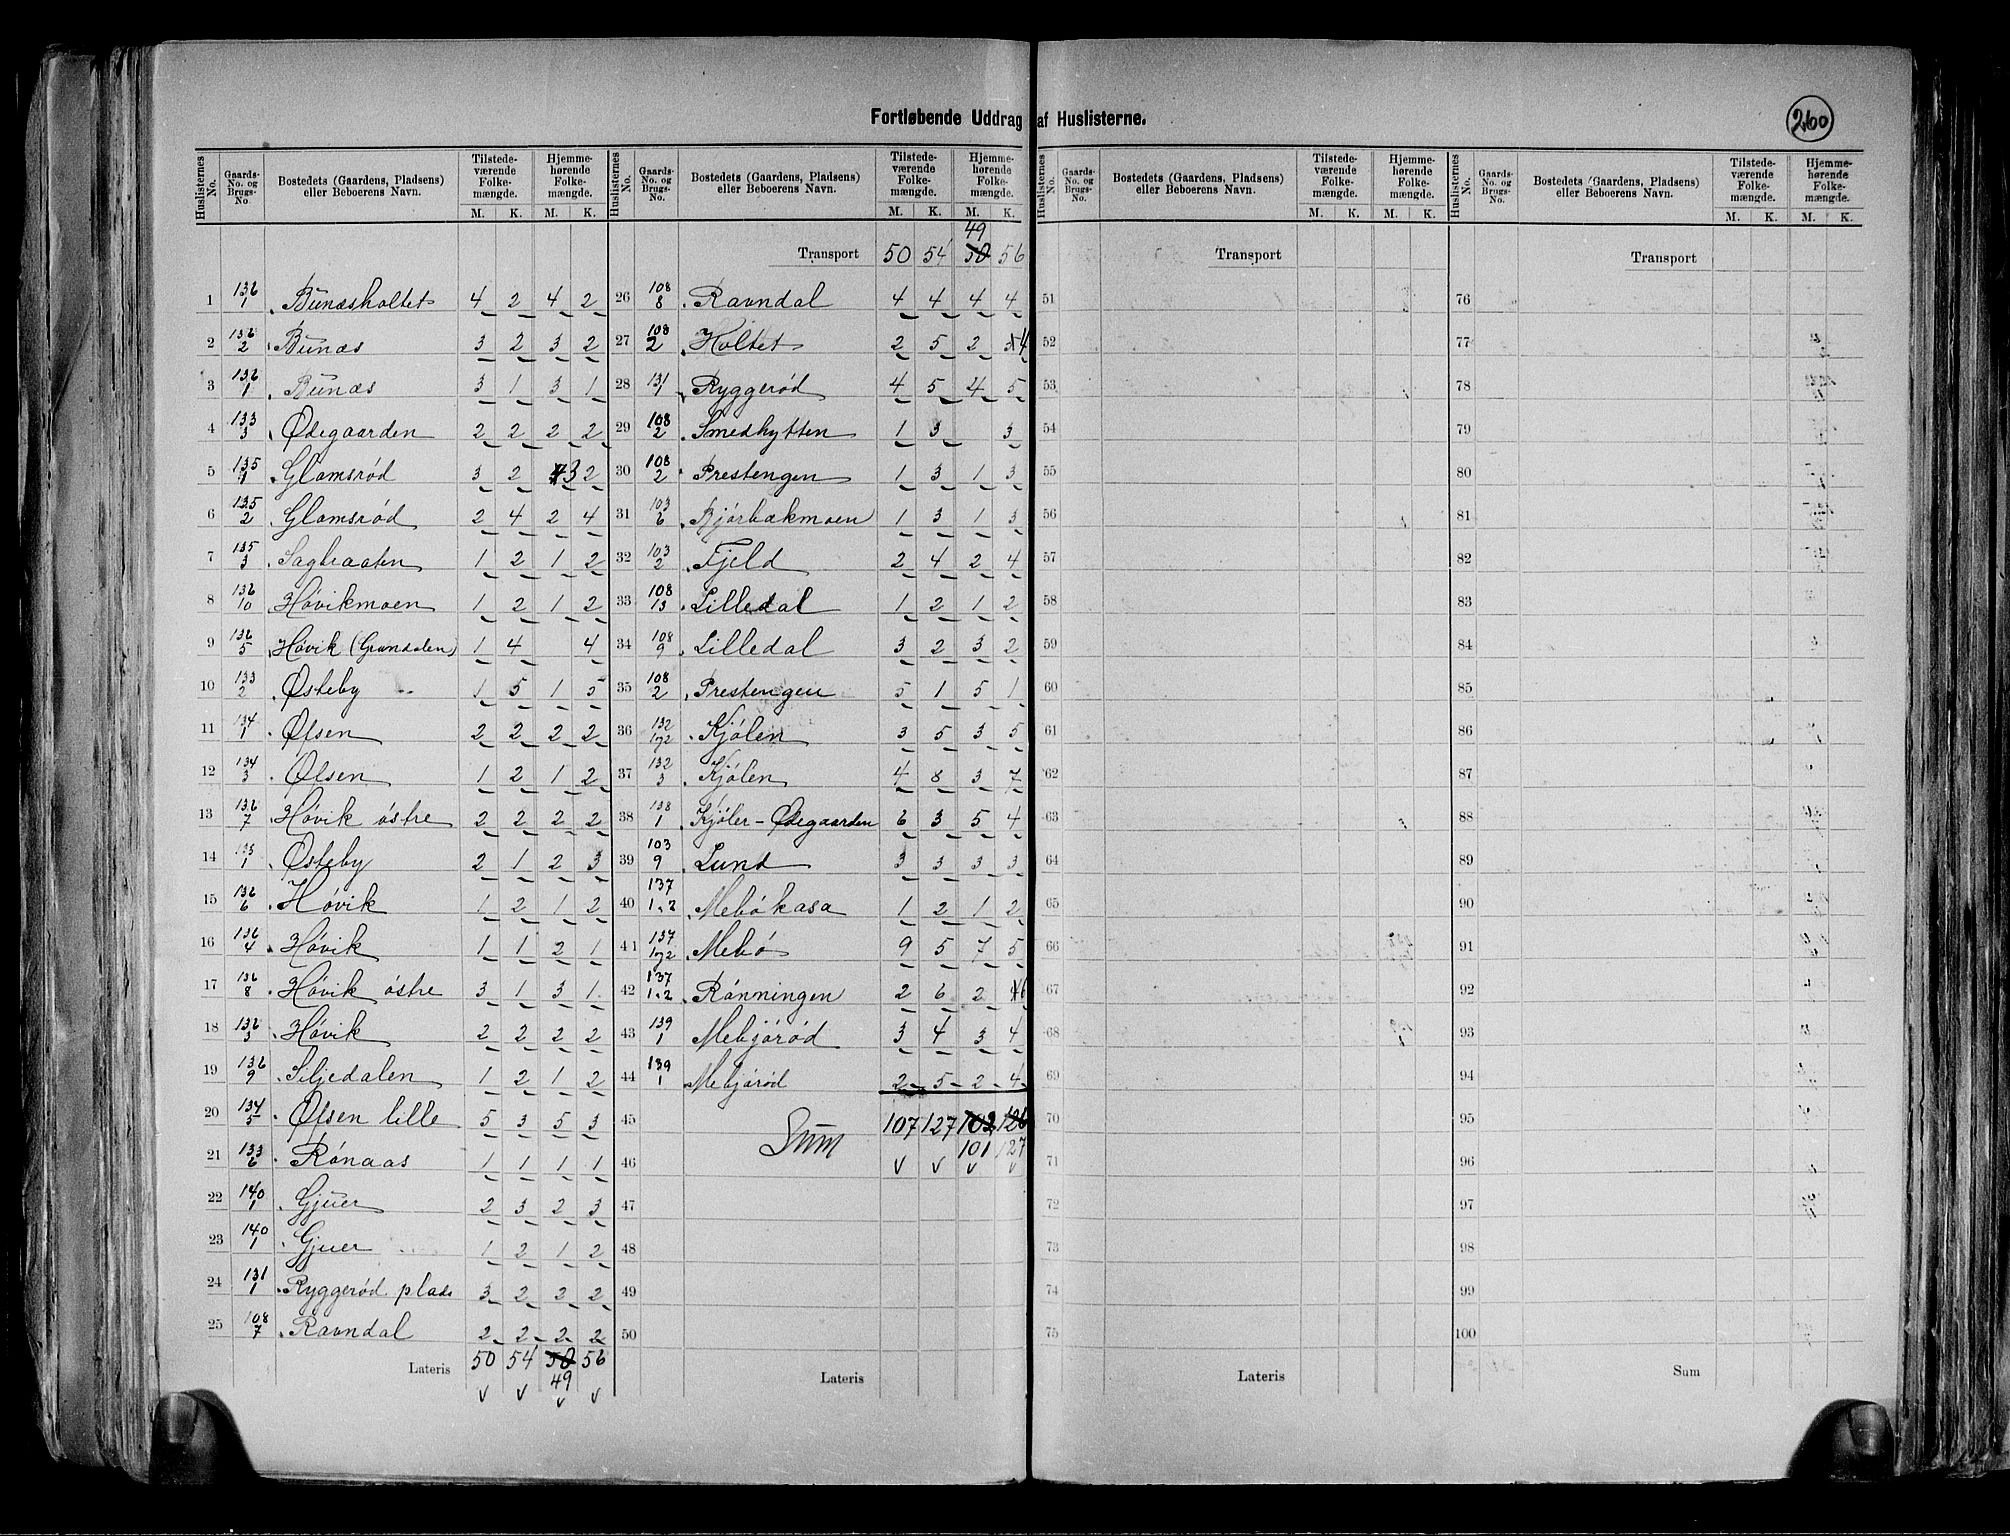 Fortløbende Uddrag af Huslisterne.
260
Huslisternes No. Gaards-No. og Brugs-No. Bostedets (Gaardens, Pladsens) eller Beboerens Navn. Tilstede-værende Folke-mængde. M. K. Hjemme-hørende Folke-mængde. M. K.
1 136/1 Bunæsholtet 4 2 4 2
2 136/2 Bunæs 3 2 3 2
3 136/1 Bunæs 3 1 3 1
4 133/3 Ødegaarden 2 2 2 2
5 135/1 Glamsrød 3 2 3 2
6 135/2 Glamsrød 2 4 2 4
7 135/3 Sagbraaten 1 2 1 2
8 136/10 Høvikmoen 1 2 1 2
9 136/5 Høvik (Grøndalen) 1 4 4
10 133/2 Østeby 1 5 1 5
11 134/1 Ølsen 2 2 2 2
12 134/3 Ølsen 1 2 1 2
13 136/7 Høvik østre 2 2 2 2
14 133/1 Østeby 2 1 2 3
15 136/6 Høvik 1 2 1 2
16 136/4 Høvik 1 1 2 1
17 136/8 Høvik østre 3 1 3 1
18 136/3 Høvik 2 2 2 2
19 136/9 Siljedalen 1 2 1 2
20 134/5 Ølsen lille 5 3 5 3
21 133/6 Rønaas 1 1 1 1
22 140/1 Gjuer 2 3 2 3
23 140/1 Gjuer 1 2 1 2
24 131/1 Ryggerød plads 3 2 2 2
25 108/7 Ravndal 2 2 2 2
Lateris 50 54 50 56
49
v v v v
Huslisternes No. Gaards-No. og Brugs-No. Bostedets (Gaardens, Pladsens) eller Beboerens Navn. Tilstede-værende Folke-mængde. M. K. Hjemme-hørende Folke-mængde. M. K.
49
Transport 50 54 50 56
26 108/8 Ravndal 4 4 4 4
27 108/2 Holtet 2 5 2 4
28 131/1 Ryggerød 4 5 4 5
29 108/2 Smedhytten 1 3 3
30 108/2 Prestengen 1 3 1 3
31 103/6 Bjørbækmoen 1 3 1 3
32 103/2 Fjeld 2 4 2 4
33 108/13 Lilledal 1 2 1 2
34 108/9 Lilledal 3 2 3 2
35 108/2 Prestengen 5 1 5 1
36 132/1og2 Kjølen 3 5 3 5
37 132/3 Kjølen 4 8 3 7
38 138/1 Kjøler-Ødegaarden 6 3 5 4
39 103/9 Lund 3 3 3 3
40 137/1.2 Mebøkasa 1 2 1 2
41 137/1og2 Mebø 9 5 7 5
42 137/1.2 Rønningen 2 6 2 6
43 139/1 Mebjørød 3 4 3 4
44 139/1 Mebjørød 2 5 2 4
45 Sum 107 127 102 126
46 101 127
v v v v
47
48
49
50
Lateris
Huslisternes No. Gaards-No. og Brugs-No. Bostedets (Gaardens, Pladsens) eller Beboerens Navn. Tilstede-værende Folke-mængde. M. K. Hjemme-hørende Folke-mængde. M. K.
Transport
51
52
53
54
55
56
57
58
59
60
61
62
63
64
65
66
67
68
69
70
71
72
73
74
75
Lateris
Huslisternes No. Gaards-No. og Brugs-No. Bostedets (Gaardens, Pladsens) eller Beboerens Navn. Tilstede-værende Folke-mængde. M. K. Hjemme-hørende Folke-mængde. M. K.
Transport
76
77
78
79
80
81
82
83
84
85
86
87
88
89
90
91
92
93
94
95
96
97
98
99
100
Sum